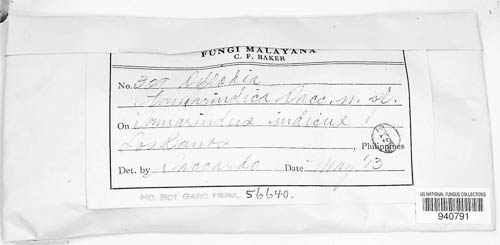 FUNGI MALAYANA
C. F. BAKER
No. 327 Diplodia
Tamarindica Sacc. n. sp.
On Tamarindus indicus
Los Banos Philippines
TYPE
Det. by Saccardo Date May '13
MO. BOT. GARD. HERB. 56640.
US NATIONAL FUNGUS COLLECTIONS
940791